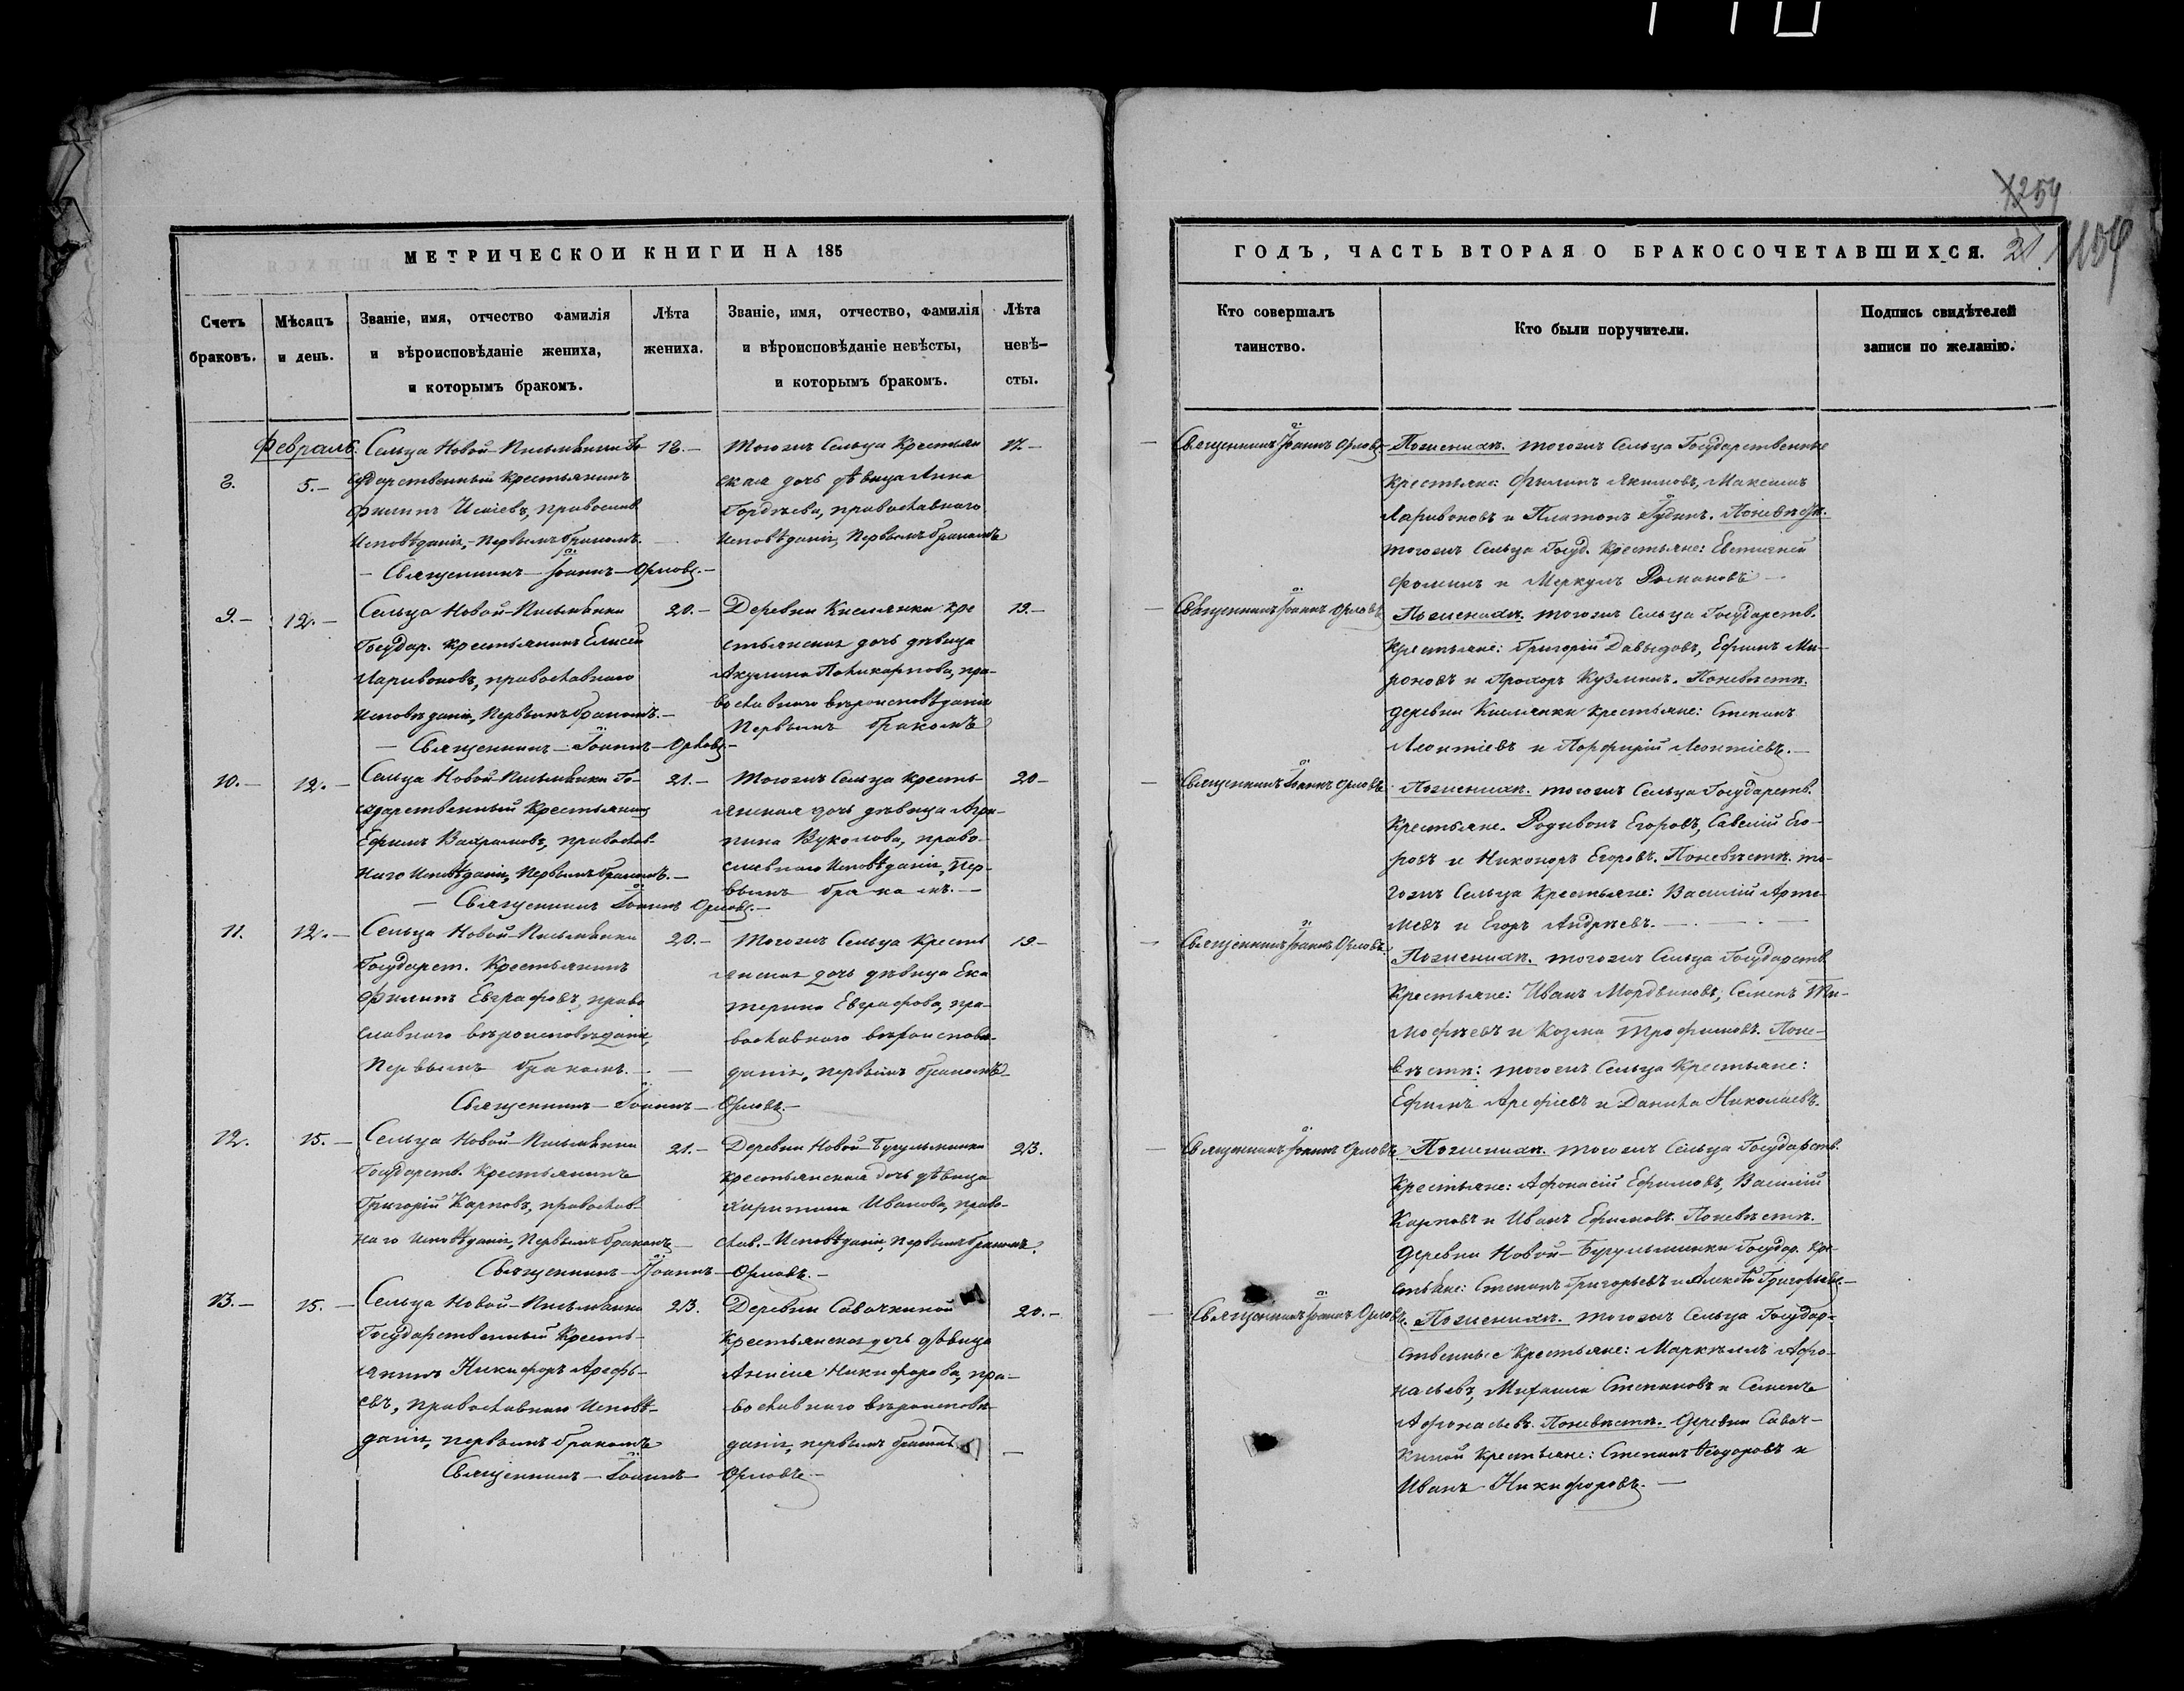 1254
21.
МЕТРИЧЕСКОЙ КНИГИ НА 185
Счетъ браковъ.
Мѣсяцъ и день.
Званіе, имя, отчество фамилія
и вѣроисповѣданіе жениха,
и которымъ бракомъ.
Лѣта
жениха.
Званіе, имя, отчество, фамилія
и вѣроисповѣданіе невѣсты,
и которымъ бракомъ.
Лѣта
невѣ-
сты.
Февраль.
8.
5.
Сельца Новой-Письмянки Го-
сударственный крестьянинъ
Филипъ Исаіевъ, православ.
исповѣданія, первымъ бракомъ.
18.
Тогожъ Сельца крестьян
ская дочь дѣвица Анна
Гордѣева, православнаго
исповѣданія, первымъ бракомъ
17.
Священникъ Іоаннъ Орловъ.
9.
12.
Сельца Новой-Письмянки
Государ. крестьянинъ Елисей
Ларивоновъ, православнаго
исповѣданія, первымъ бракомъ.
20.
Деревни Кислянки кре
стьянская дочь дѣвица
Акулина Поликарпова, пра-
вославнаго вѣроисповѣданія
первымъ бракомъ
19.
Священникъ Іоаннъ Орловъ.
10.
12.
Сельца Новой-Письмянки Го-
сударственный крестьянинъ
Ефимъ Вахрамовъ, православ-
наго исповѣданія, первымъ бракомъ.
21.
Тогожъ Сельца кресть
янская дочь дѣвица Агри-
пина Вуколова, право-
славнаго исповѣданія, пер-
вымъ бракомъ.
20
Священникъ Іоаннъ Орловъ.
11.
12.
Сельца Новой-Письмянки
Государст. крестьянинъ
Филипъ Евграфовъ, право
славнаго вѣроисповѣданія,
первымъ бракомъ.
20.
Тогожъ Сельца кресть
янская дочь дѣвица Ека
терина Евграфова, пра-
вославнаго вѣроисповѣ-
данія, первымъ бракомъ
19
Священникъ Іоаннъ Орловъ.
12.
15.
Сельца Новой-Письмянки
Государств. крестьянинъ
Григорій Карповъ, православ-
наго исповѣданія, первымъ бракомъ
21.
Деревни Новой-Бугульминки
крестьянская дочь дѣвица
Харитина Иванова, право-
слав. исповѣданія, первымъ бракомъ.
23.
Священникъ Іоаннъ Орловъ.
13.
15.
Сельца Новой-Письмянки
Государственный кресть-
янинъ Никифоръ Арефь-
евъ, православнаго исповѣ-
данія, первымъ бракомъ
23.
Деревни Савочкиной
крестьянская дочь дѣвица
Аксинья Никифорова, пра-
вославнаго вѣроисповѣ
данія, первымъ бракомъ.
20.
Священникъ Іоаннъ Орловъ
ГОДЪ, ЧАСТЬ ВТОРАЯ О БРАКОСОЧЕТАВШИХСЯ.
Кто совершалъ
таинство.
Кто были поручители.
Подпись свидѣтелей
записи по желанію.
Священникъ Іоаннъ Орловъ
По женихѣ. тогожъ Сельца Государственные
крестьяне: Филипъ Акимовъ, Максимъ
Ларивоновъ и Платонъ Гудинъ. По невѣстѣ.
тогожъ Сельца Госуд. крестьяне: Евстигней
Фоминъ и Меркулъ Романовъ
Священникъ Іоаннъ Орловъ
По женихѣ. тогожъ Сельца Государств.
крестьяне: Григорій Давыдовъ, Ефимъ Ми-
роновъ и Прохоръ Кузминъ. По невѣстѣ.
деревни Кислянки крестьяне: Степанъ
Леонтіевъ и Порфирій Леонтіевъ.
Священникъ Іоаннъ Орловъ
По женихѣ. тогожъ Сельца Государств.
крестьяне. Родивонъ Егоровъ, Савелій Его-
ровъ и Никоноръ Егоровъ. По невѣстѣ. то-
гожъ Сельца крестьяне: Василій Арте-
мевъ и Егоръ Андрѣевъ.
Священникъ Іоаннъ Орловъ.
По женихѣ. тогожъ Сельца Государств
крестьяне: Иванъ Мордвиновъ, Семенъ Ти-
мофѣевъ и Козма Трофимовъ. По не-
вѣстѣ: тогожъ Сельца крестьяне:
Ефимъ Арефіевъ и Данила Николаевъ.
Священникъ Іоаннъ Орловъ
По женихѣ. тогожъ Сельца Государств.
крестьяне: Афонасій Ефимовъ, Василій
Карповъ и Иванъ Ефимовъ. По невѣстѣ.
деревни Новой-Бугульминки Государ. кре-
стьяне: Степанъ Григорьевъ и Алексѣй Григорьевъ.
Священникъ Іоаннъ Орловъ.
По женихѣ. тогожъ Сельца Государ-
ственные крестьяне: Маркелъ Афо-
насьевъ, Михаила Степановъ и Семенъ
Афонасьевъ. По невѣстѣ. деревни Савоч-
киной крестьяне: Степанъ Ѳеодоровъ и
Иванъ Никифоровъ.